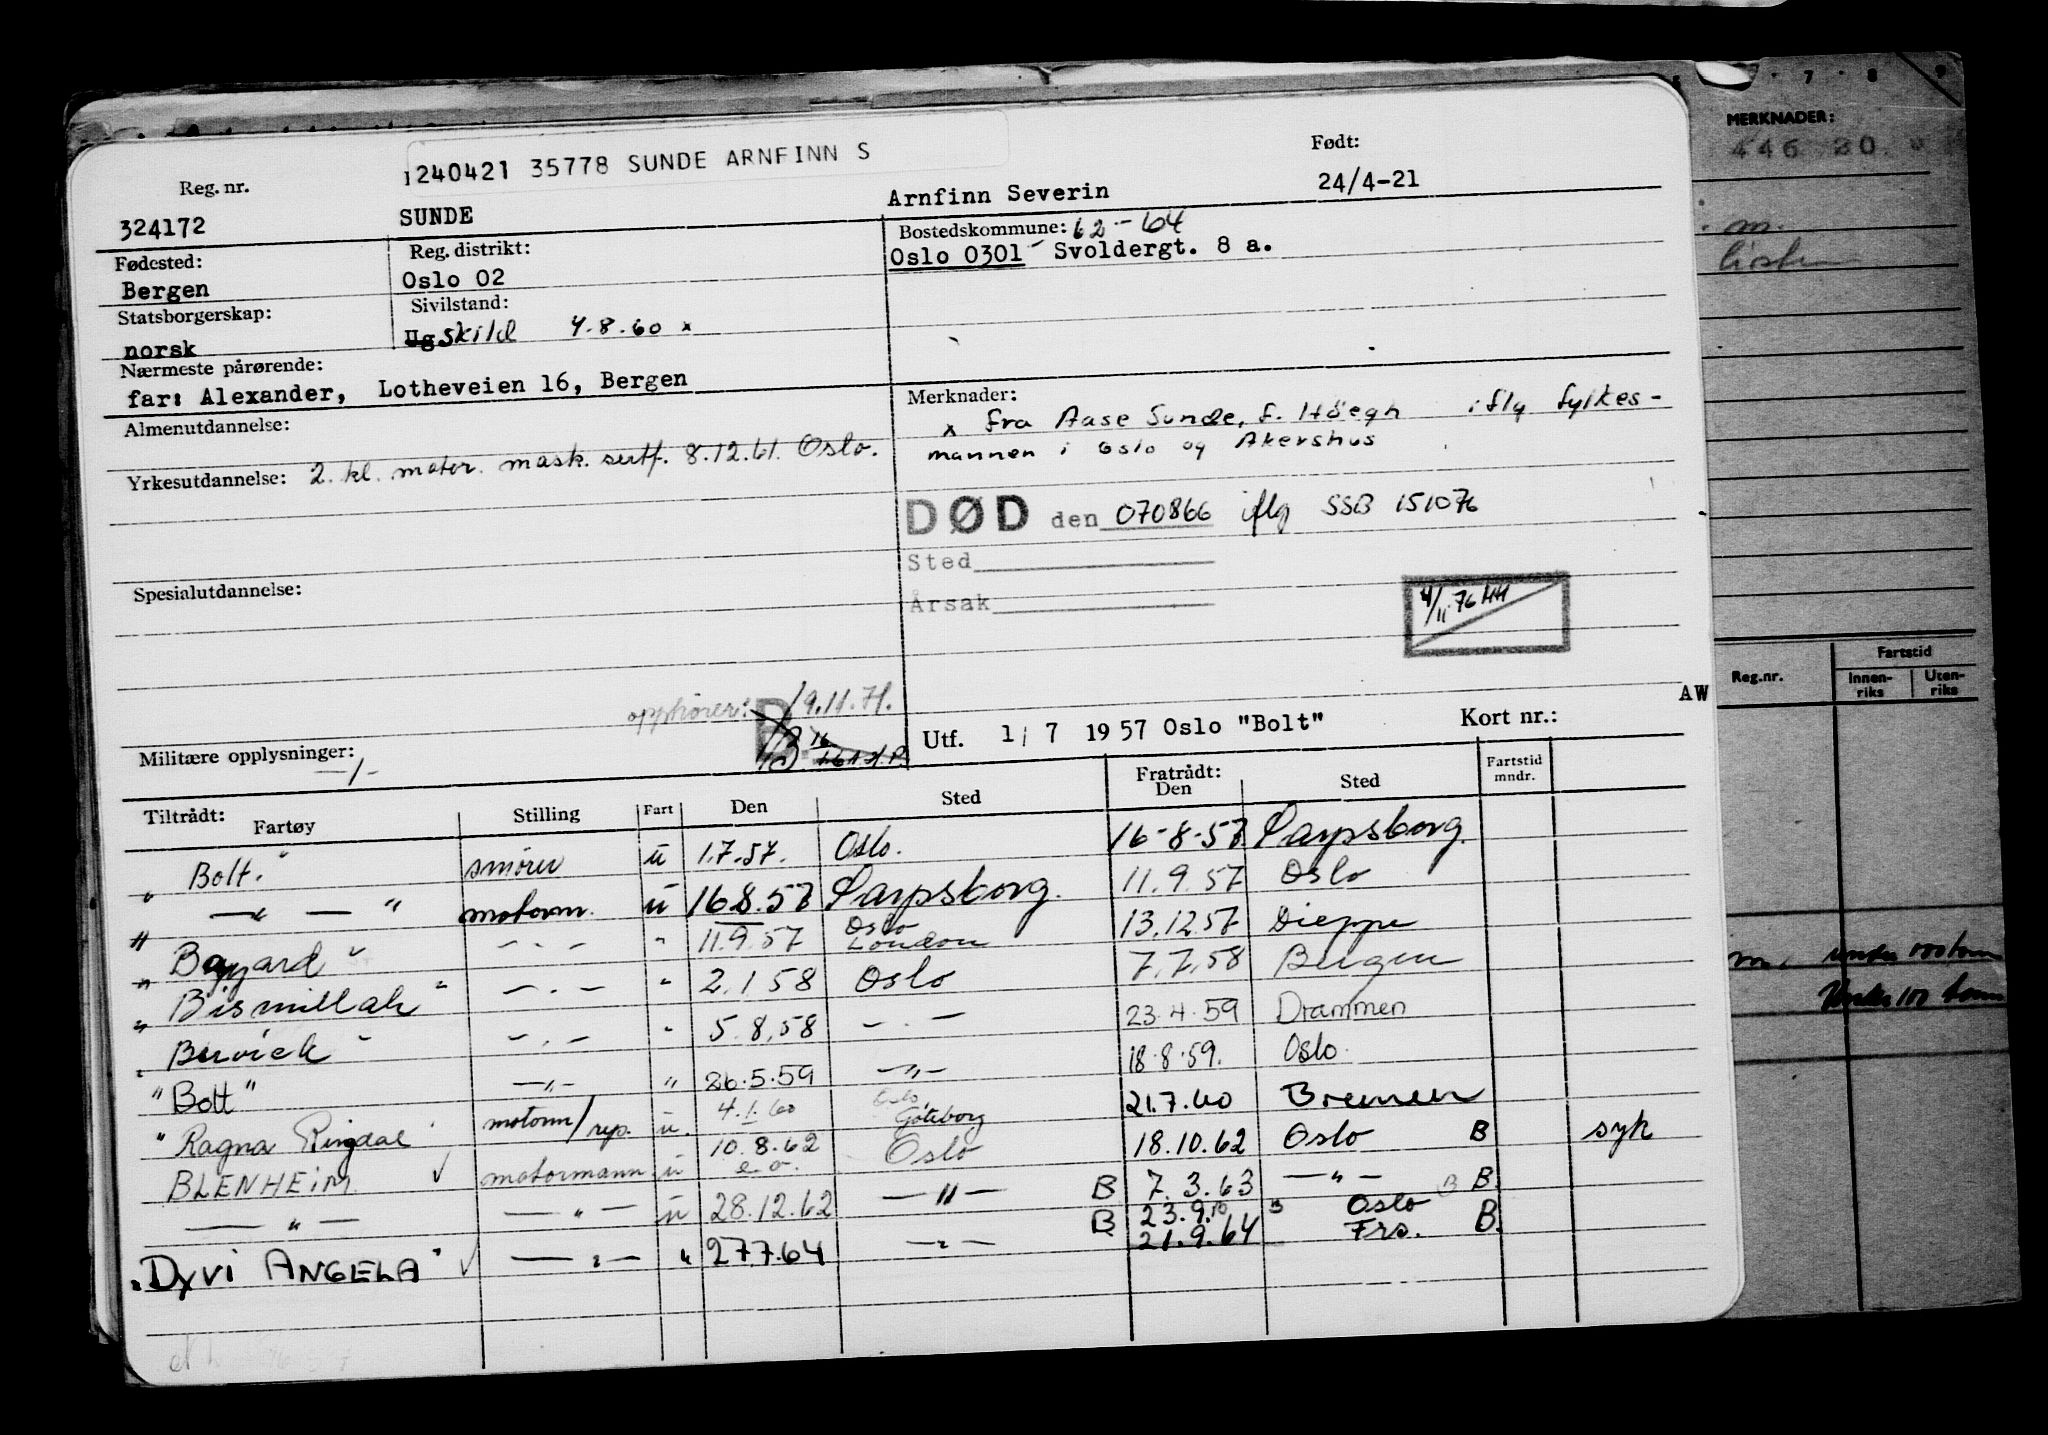 240421 35778 SUNDE ARNFINN S
Reg. nr. Født:
324172 SUNDE Arnfinn Severin 24/4-21
Fødested: Reg. distrikt: Bostedskommune: 62-64
Bergen Oslo 02 Oslo 0301 Svoldergt. 8 a.
Statsborgerskap: Sivilstand:
norsk Ug skild 4.8.60 x
Nærmeste pårørende:
far: Alexander, Lotheveien 16, Bergen
Almenutdannelse:
Yrkesutdannelse: 2. kl. motor. mask. sertf. 8.12.61. Oslo.
Spesialutdannelse:
Merknader:
x fra Aase Sunde, f. Höegh iflg fylkes-
mannen i Oslo og Akershus
DØD den 070866 iflg SSB 151076
Sted
Årsak
4/11 76 HH
opphører: 19.11.71.
AW
Militære opplysninger:
Utf. 1/7 1957 Oslo "Bolt" Kort nr.:
Tiltrådt: Fratrådt: Fartstid mndr.
Fartøy Stilling Fart Den Sted Den Sted
"Bolt." smører u 1.7.57. Oslo. 16-8-57 Sarpsborg.
" — " — " motorm. u 16.8.57 Sarpsborg. 11.9.57 Oslo
"Bayard" — . — " 11.9.57 Oslo London 13.12.57 Dieppe
"Bismillah" — . — " 2.1.58 Oslo 7.7.58 Bergen
"Berwick" — . — " 5.8.58 — . — 23.4.59 Drammen
"Bolt" — " — " 26.5.59 — " — 18.8.59. Oslo.
"Ragna Ringdal" motorm/rep. u. 4.1.60 Oslo, Göteborg 21.7.60 Bremen
BLENHEIM ✓ motormann u 10.8.62 e.o. Oslo 18.10.62 Oslo B syk
— " — — " — u 28.12.62 — " — B 7.3.63 — " — B.
"DYVI ANGELA" ✓ — " — " 27.7.64 — " — B 23.9. 21.9.64 B Oslo Frs. B.
7 8 9
MERKNADER:
446 20.
m.
Reg.nr. Fartstid
Innen-riks Uten-riks
under 100 tonn
Under 100 tonn